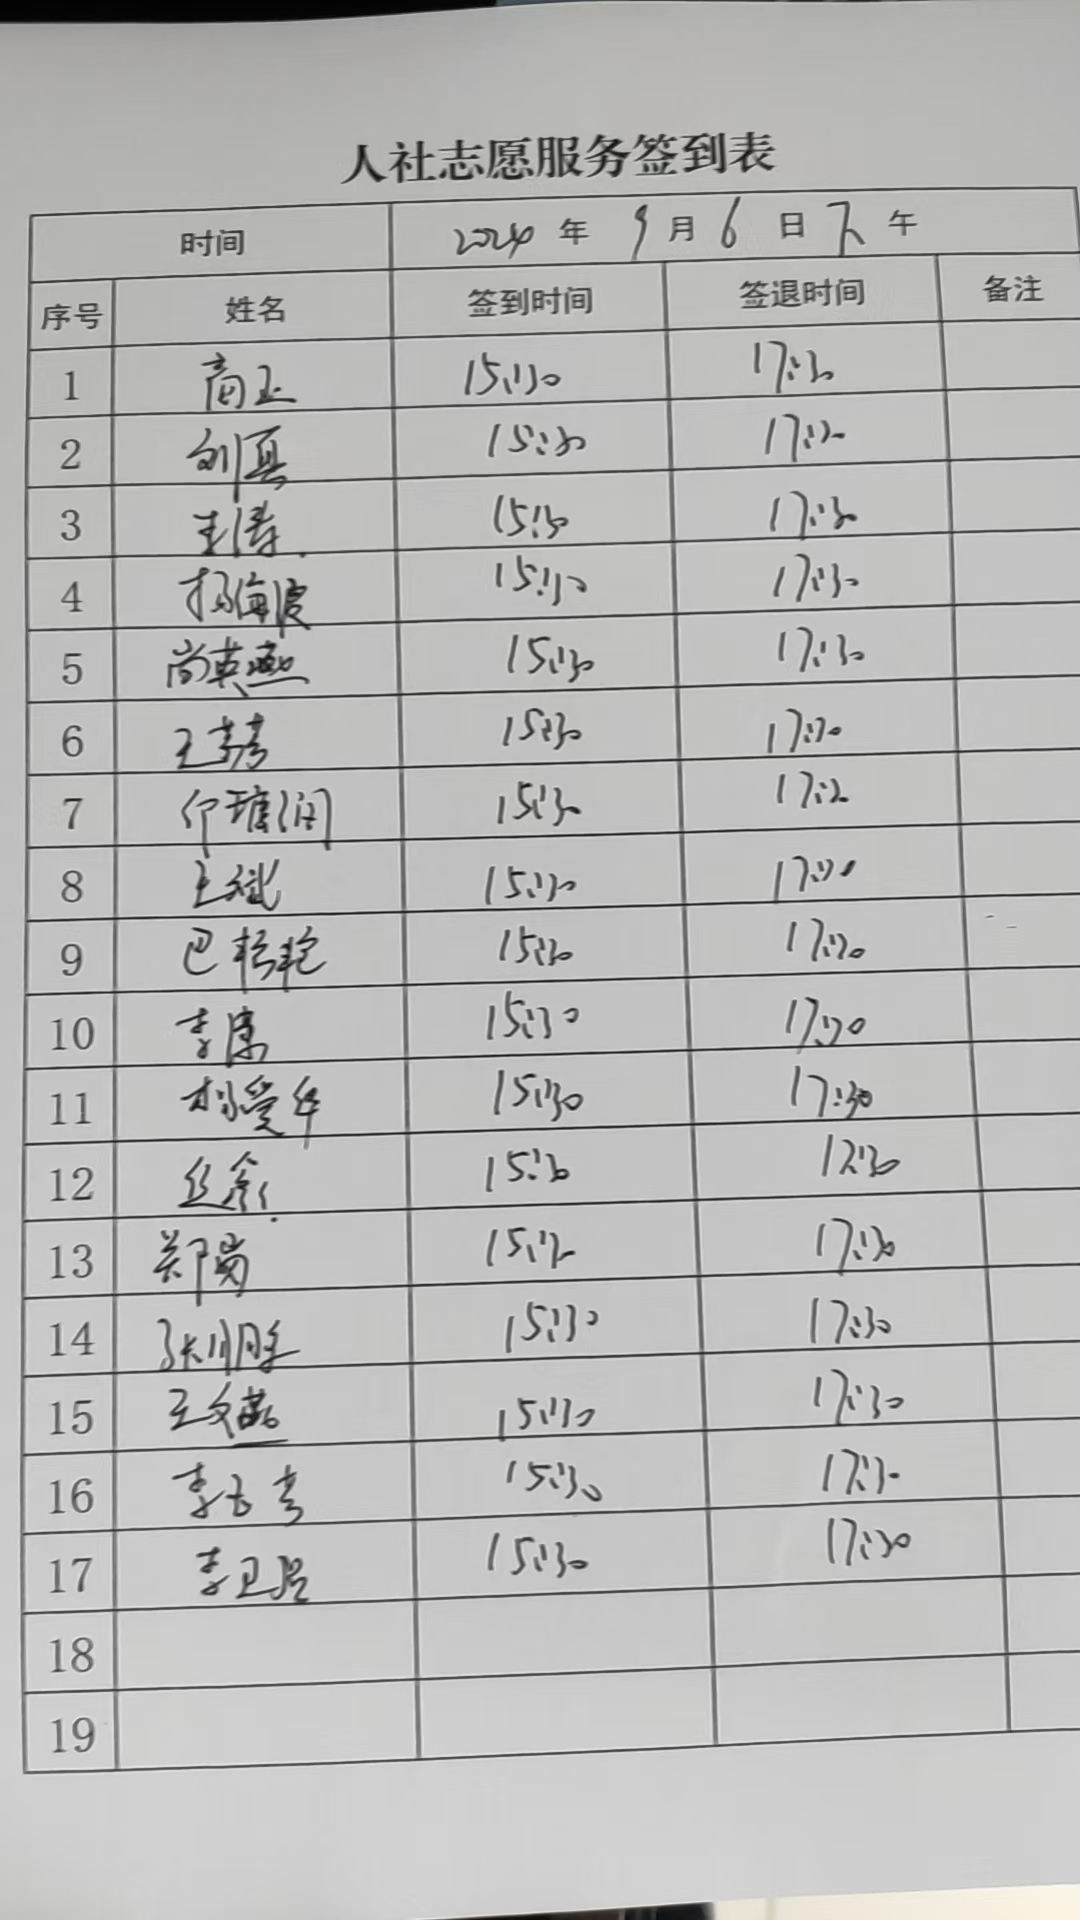 人社志愿服务签到表
时间 2024 年 9 月 6 日 下 午
序号 姓名 签到时间 签退时间 备注
1 商玉 15:30 17:30
2 刘真 15:30 17:30
3 王涛 15:30 17:30
4 杨海波 15:30 17:30
5 尚英燕 15:30 17:30
6 王 15:30 17:30
7 15:30 17:30
8 王斌 15:30 17:30
9 巴 15:30 17:30
10 李康 15:30 17:30
11 杨爱华 15:30 17:30
12 15:30 17:30
13 郑 15:30 17:30
14 张 15:30 17:30
15 王文燕 15:30 17:30
16 李 15:30 17:30
17 李卫 15:30 17:30
18
19